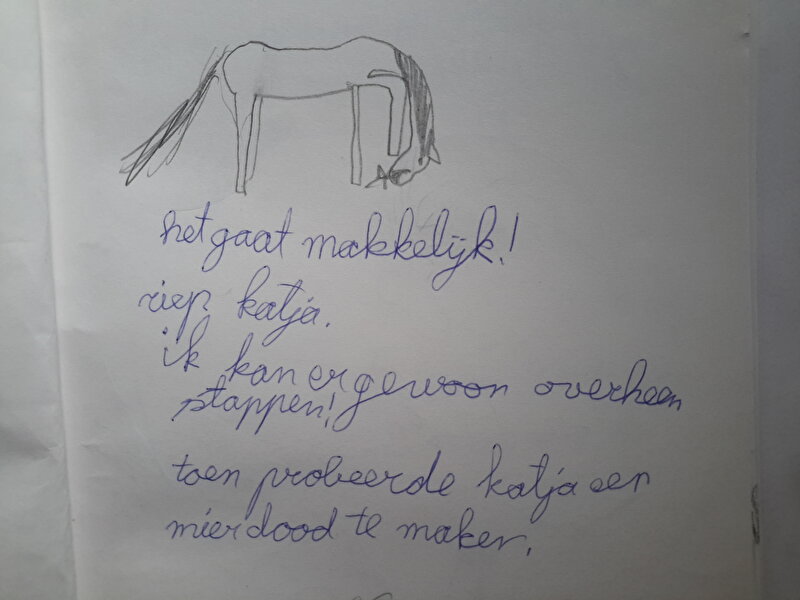 het gaat makkelijk!
riep katja.
ik kan er gewoon overheen
stappen!
toen probeerde katja een
mier dood te maken.